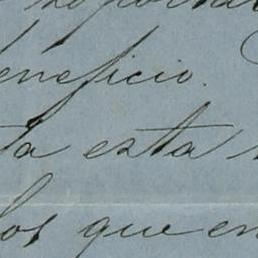 eneficio.
ta esta
los que en